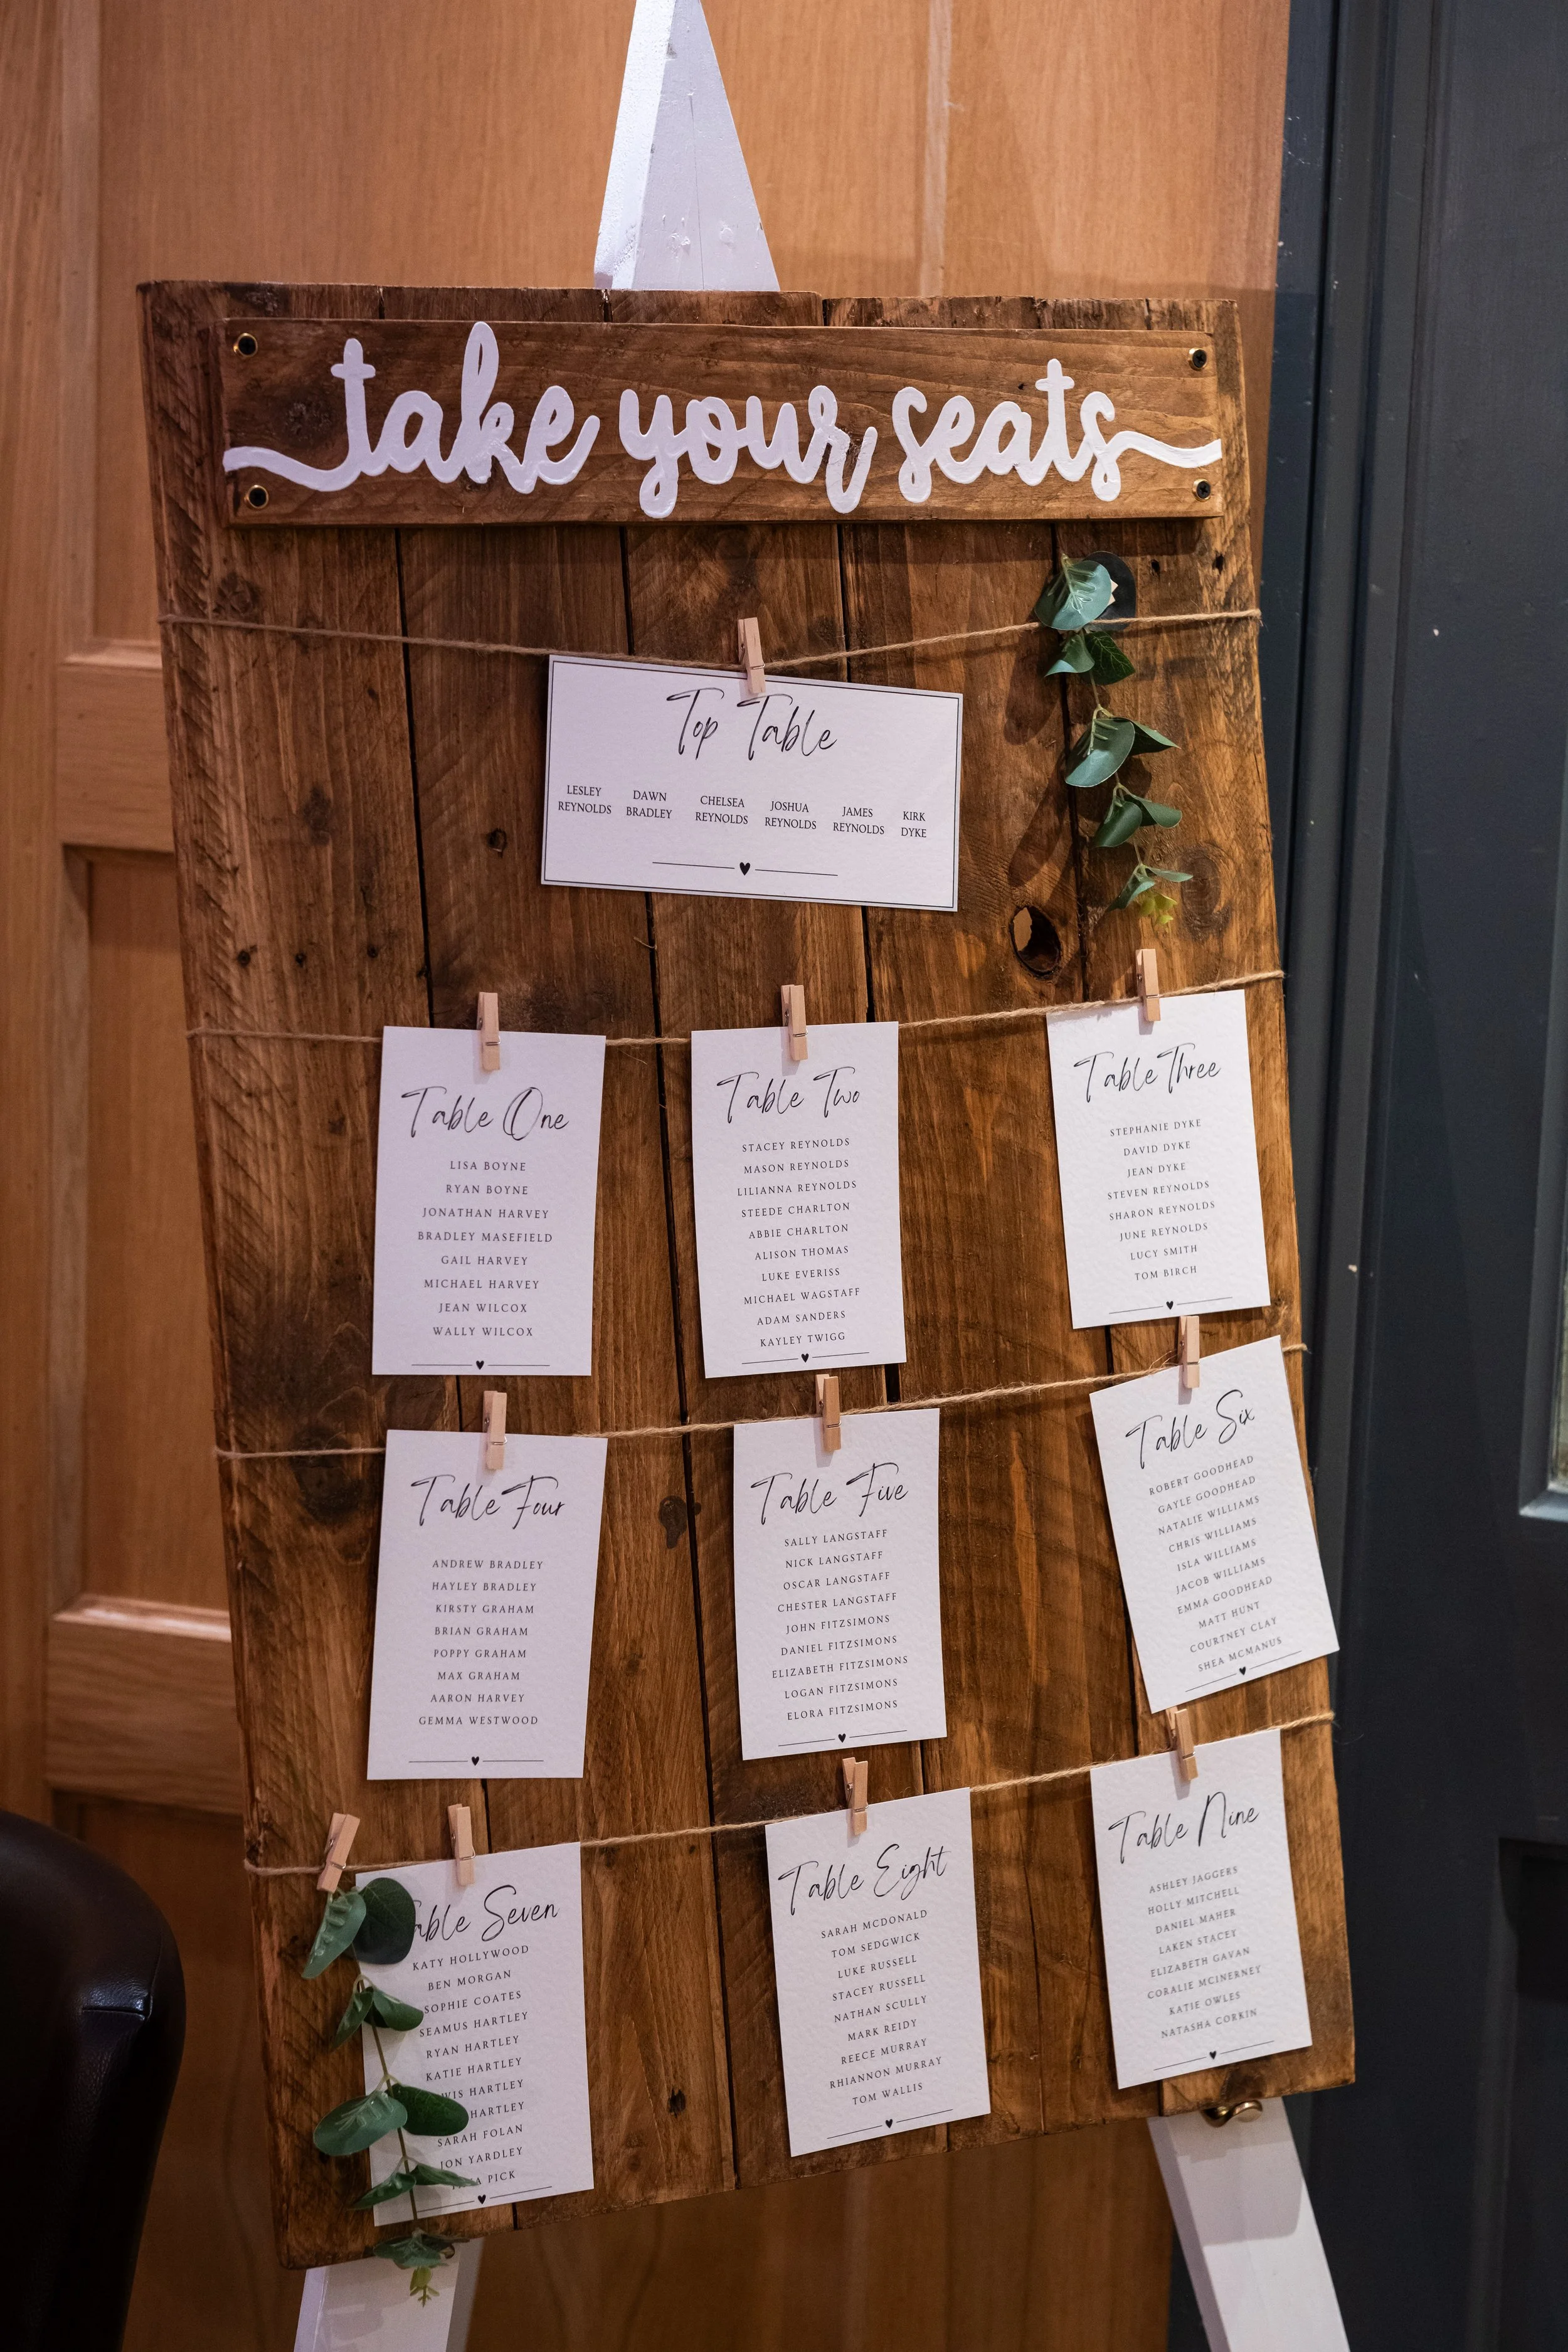 take your seats
Top Table
LESLEY REYNOLDS
DAWN BRADLEY
CHELSEA REYNOLDS
JOSHUA REYNOLDS
JAMES REYNOLDS
KIRK DYKE
Table One
LISA BOYNE
RYAN BOYNE
JONATHAN HARVEY
BRADLEY MASEFIELD
GAIL HARVEY
MICHAEL HARVEY
JEAN WILCOX
WALLY WILCOX
Table Two
STACEY REYNOLDS
MASON REYNOLDS
LILIANNA REYNOLDS
STEEDE CHARLTON
ABBIE CHARLTON
ALISON THOMAS
LUKE EVERISS
MICHAEL WAGSTAFF
ADAM SANDERS
KAYLEY TWIGG
Table Three
STEPHANIE DYKE
DAVID DYKE
JEAN DYKE
STEVEN REYNOLDS
SHARON REYNOLDS
JUNE REYNOLDS
LUCY SMITH
TOM BIRCH
Table Four
ANDREW BRADLEY
HAYLEY BRADLEY
KIRSTY GRAHAM
BRIAN GRAHAM
POPPY GRAHAM
MAX GRAHAM
AARON HARVEY
GEMMA WESTWOOD
Table Five
SALLY LANGSTAFF
NICK LANGSTAFF
OSCAR LANGSTAFF
CHESTER LANGSTAFF
JOHN FITZSIMONS
DANIEL FITZSIMONS
ELIZABETH FITZSIMONS
LOGAN FITZSIMONS
ELORA FITZSIMONS
Table Six
ROBERT GOODHEAD
GAYLE GOODHEAD
NATALIE WILLIAMS
CHRIS WILLIAMS
ISLA WILLIAMS
JACOB WILLIAMS
EMMA GOODHEAD
MATT HUNT
COURTNEY CLAY
SHEA MCMANUS
Seven
KATY HOLLYWOOD
BEN MORGAN
SOPHIE COATES
SEAMUS HARTLEY
RYAN HARTLEY
KATIE HARTLEY
HARTLEY
HARTLEY
SARAH FOLAN
JON YARDLEY
PICK
Table Eight
SARAH MCDONALD
TOM SEDGWICK
LUKE RUSSELL
STACEY RUSSELL
NATHAN SCULLY
MARK REIDY
REECE MURRAY
RHIANNON MURRAY
TOM WALLIS
Table Nine
ASHLEY JAGGERS
HOLLY MITCHELL
DANIEL MAHER
LAKEN STACEY
ELIZABETH GAVAN
CORALIE MCINERNEY
KATIE OWLES
NATASHA CORKIN